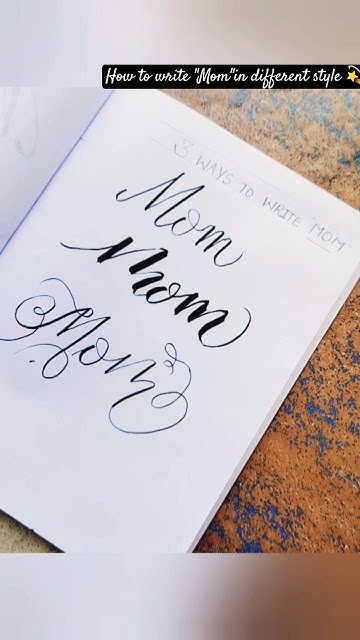 How to write "Mom"in different style 💫
3 WAYS TO WRITE "MOM"
Mom
Mom
Mom